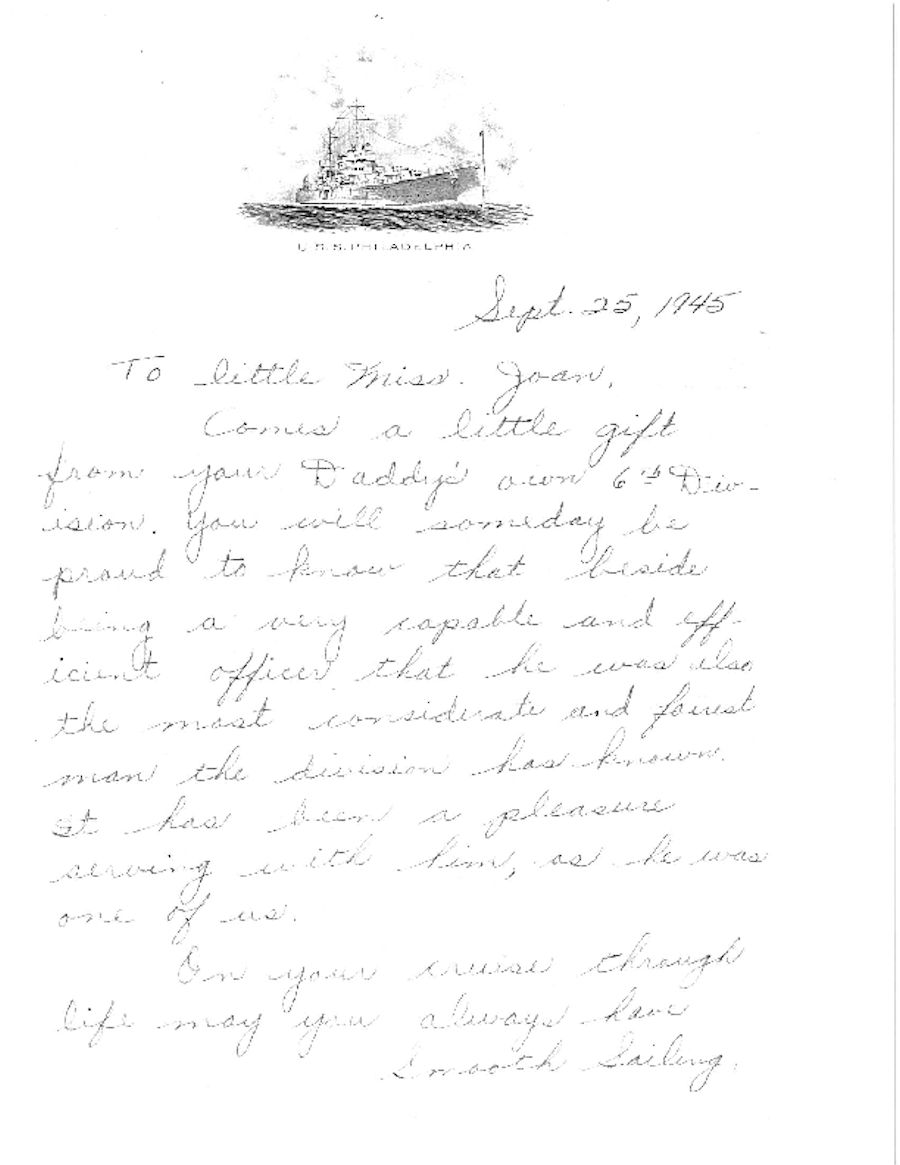 U.S.S. PHILADELPHIA
Sept. 25, 1945
To little Miss. Joan,
Comes a little gift
from your Daddy's own 6th Div-
ision. You will someday be
proud to know that beside
being a very capable and eff-
icient officer that he was also
the most considerate and fairest
man the division has known.
It has been a pleasure
serving with him, as he was
one of us.
On your cruise through
life may you always have
Smooth Sailing.